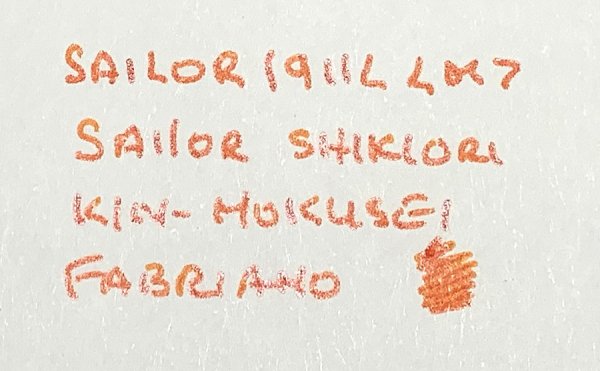 SAILOR 1911L LM7
SAILOR SHIKIORI
KIN-MOKUSEI
FABRIANO